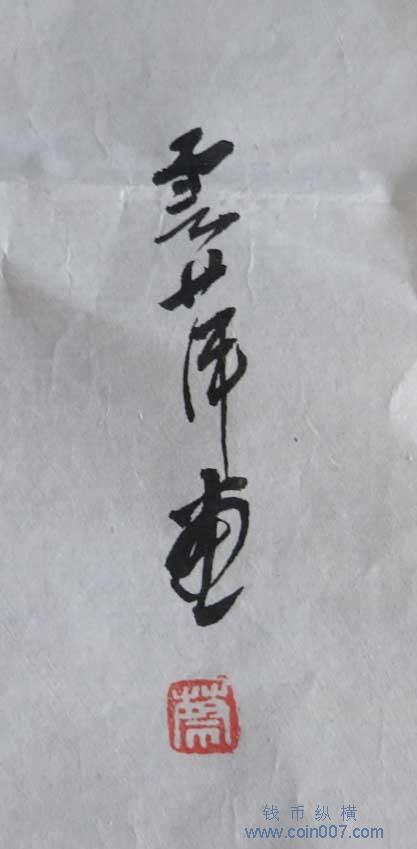 雲萍畫
蔡
钱币纵横
www.coin007.com